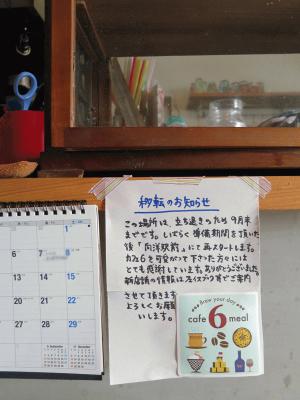 移転のお知らせ
この場所は、立ち退きのため9月末
までです。しばらく準備期間を頂いた
後「向洋駅前」にて再スタートします。
カフェ6を可愛がって下さった方々には
とても感謝しています。ありがとうございました。
新店舗の情報はフェイスブック等でご案内
させて頂きます
よろしくお願
いします。
Brew your day
cafe 6 meal
1
7
8
14
15
21
22
28
29